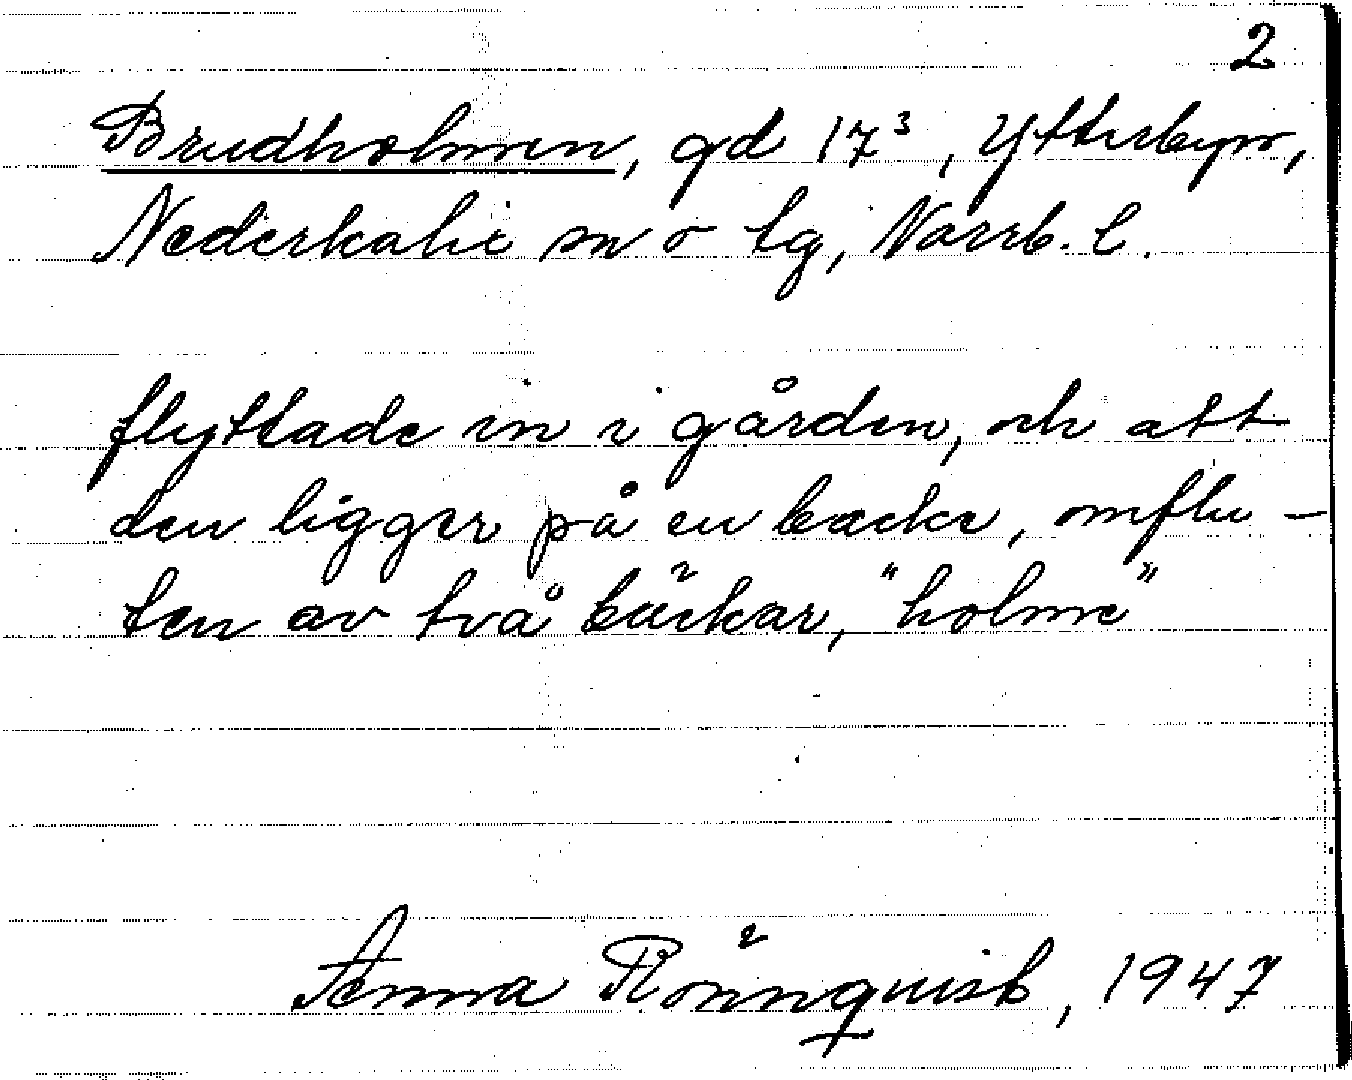 2
Brudholmen, gd 17³, Ytterbyn,
Nederkalix sn o tg, Norrb. l.
flyttade in i gården, och att
den ligger på en backe, omflu-
ten av två bäckar, "holme"
Anna Rönnquist, 1947